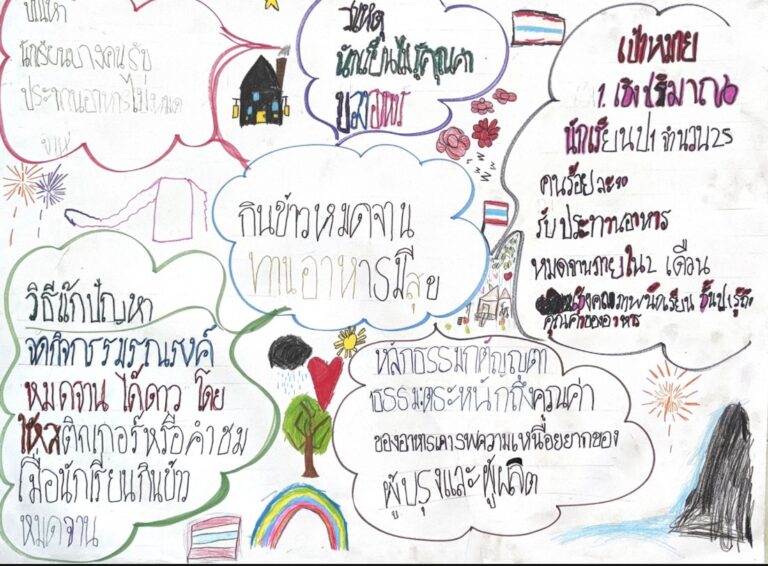 ปัญหา
นักเรียนบางคนรับ
ประทานอาหารไม่หมด
จาน
สาเหตุ
นักเรียนไม่รู้คุณค่า
ของอาหาร
เป้าหมาย
1. เชิงปริมาณ
นักเรียนป1 จำนวน25
คนร้อยละ90
รับประทานอาหาร
หมดจานภายใน2 เดือน
เชิงคุณภาพนักเรียน ชั้นป1รู้ถึง
คุณค่าของอาหาร
กินข้าวหมดจาน
ทานอาหารมีสุข
วิธีแก้ปัญหา
จัดกิจกรรมรณรงค์
หมดจาน ได้ดาว โดย
ให้สติกเกอร์หรือคำชม
เมื่อนักเรียนกินข้าว
หมดจาน
หลักธรรมกตัญญุตา
ธรรมตระหนักถึงคุณค่า
ของอาหารเคารพความเหนื่อยยากของ
ผู้ปรุงและผู้ผลิต